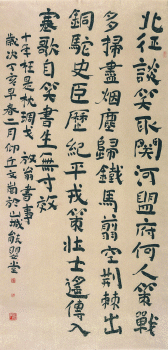 北征談笑取關河盟府何人策戰
多掃盡烟塵歸鐵馬翦空荆棘出
銅駝史臣歷紀平戎策壯士遙傳入
塞歌自笑書生無寸效
十年枉是枕琱戈 放翁書事
歲次丁亥早春二月 於山城 堂